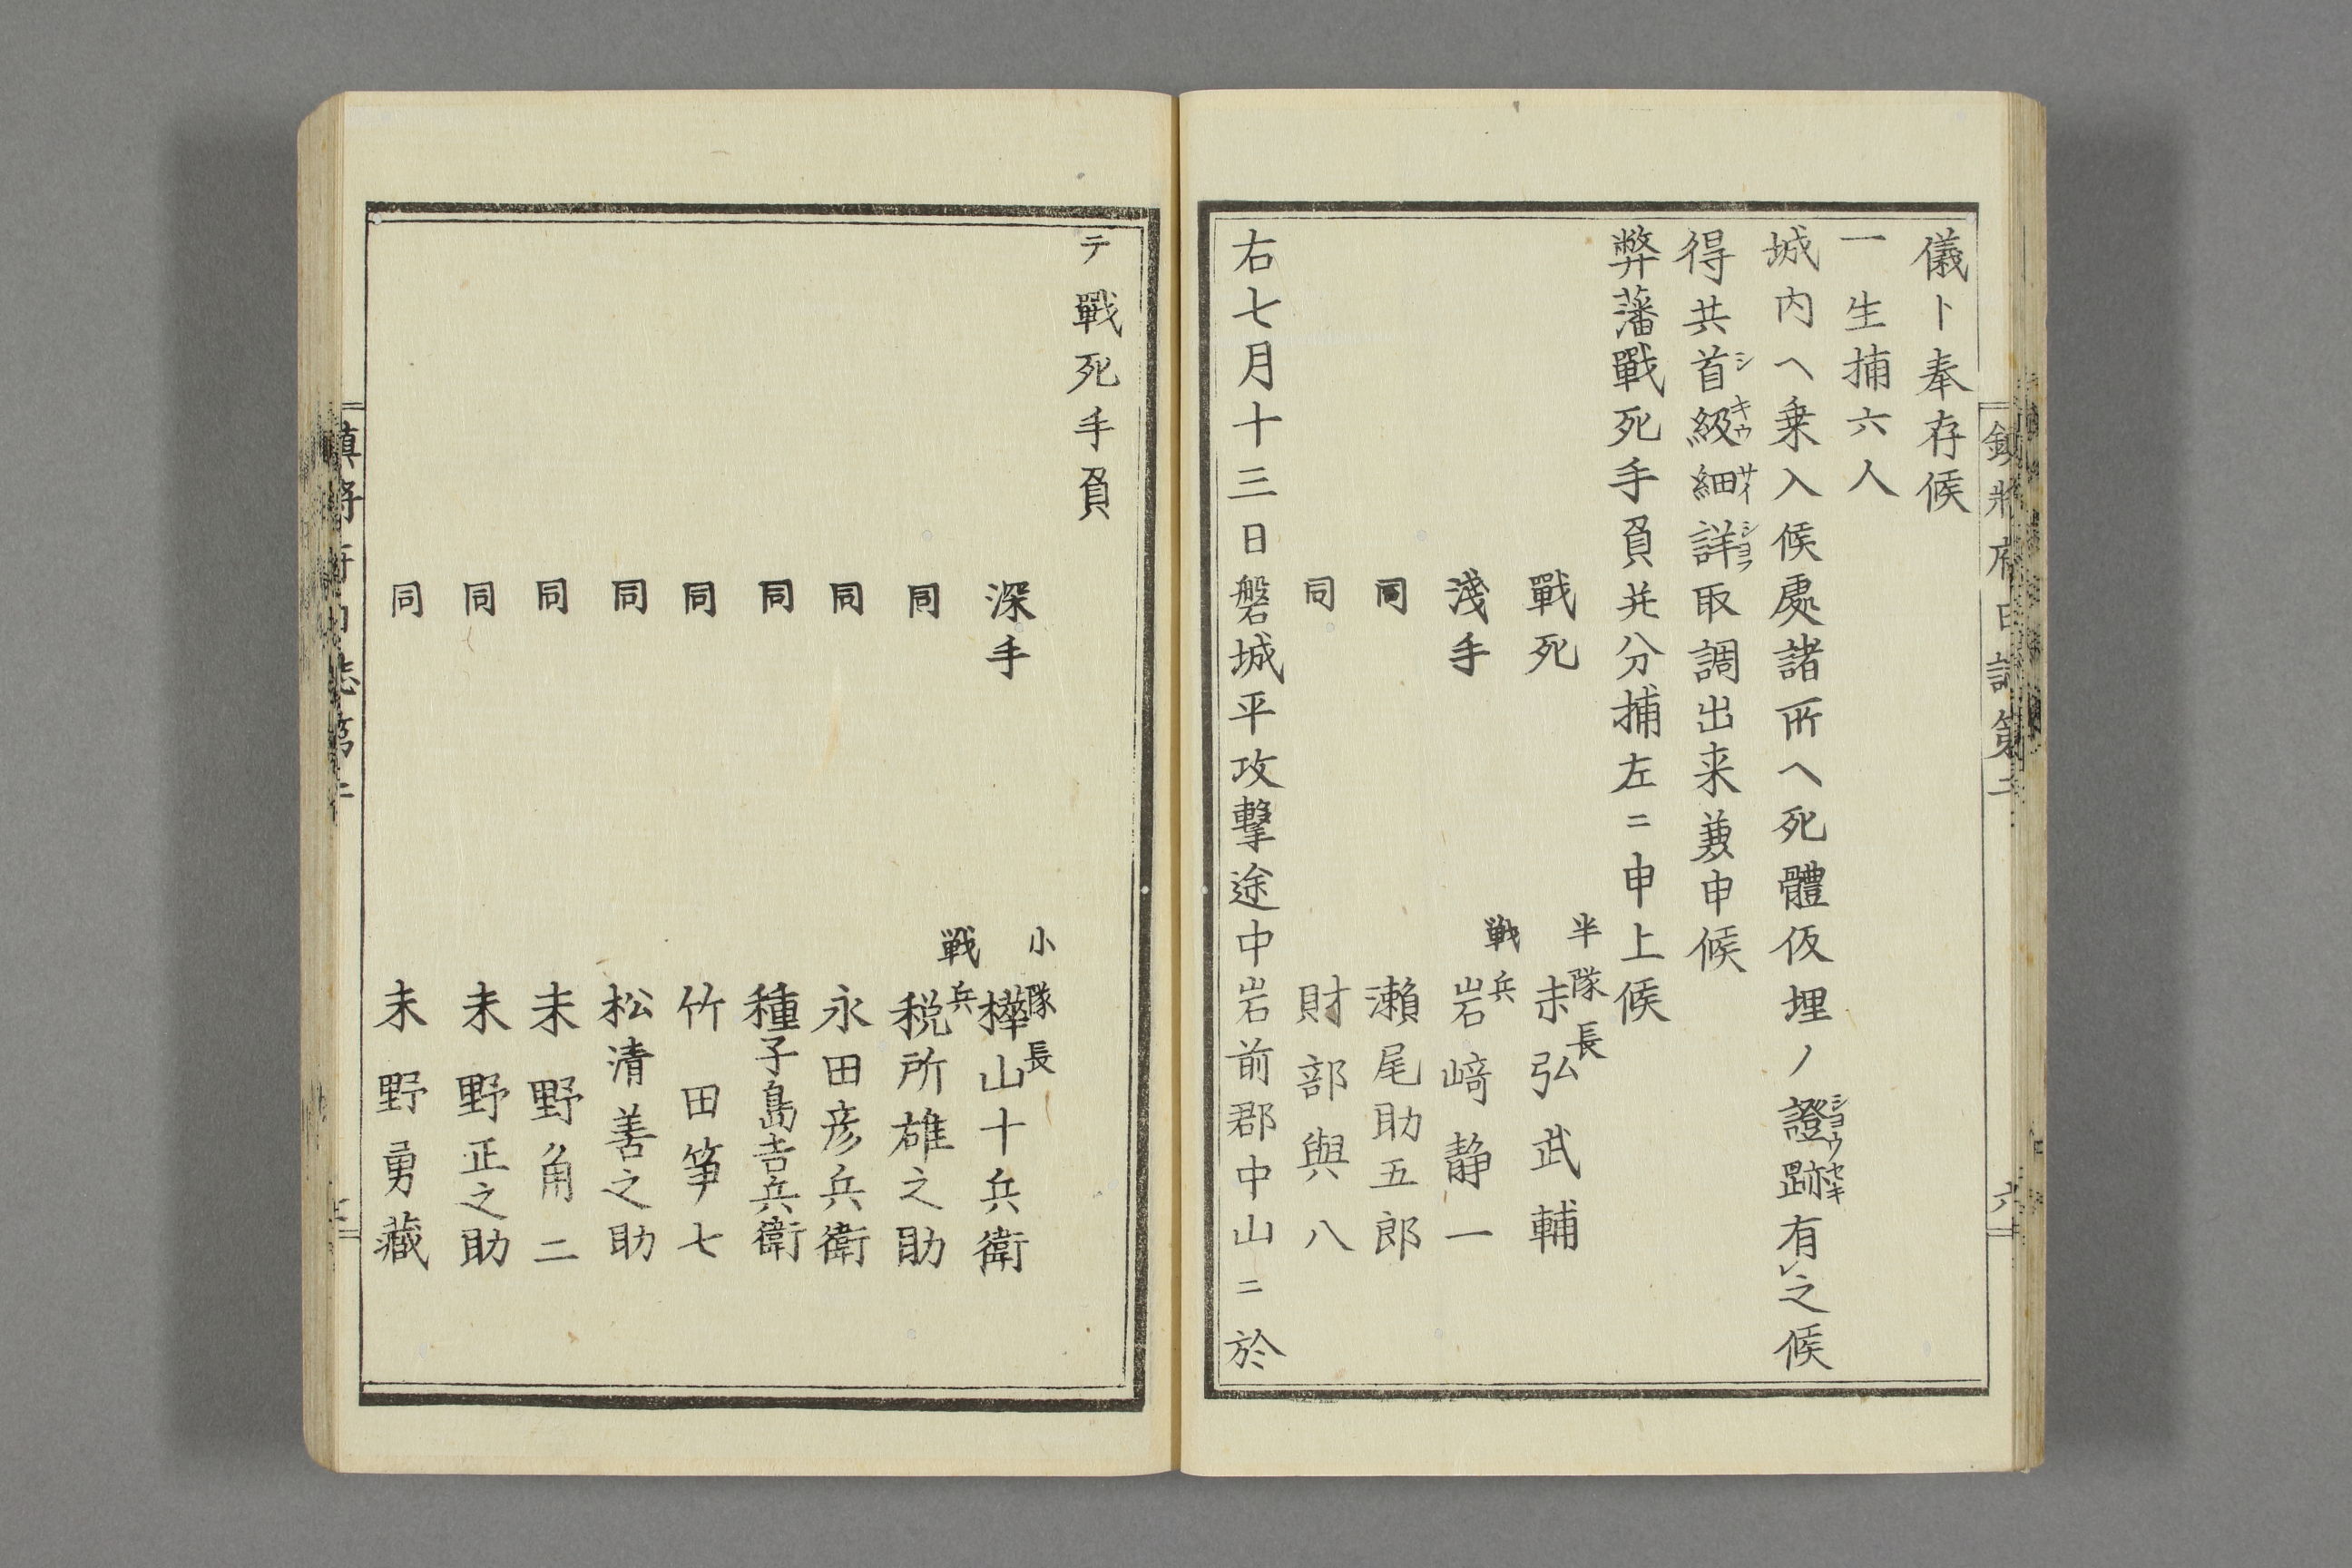 儀ト奉存候
一生捕六人
城内ヘ乗入候處諸所ヘ死體仮埋ノ證跡有之候
ショウセキ
得共首級細詳取調出来兼申候
シキウサイショウ
弊藩戰死手負并分捕左ニ申上候
半隊長
戰死 末弘武輔
戦兵
淺手 岩﨑静一
同 瀬尾助五郎
同 財部與八
右七月十三日磐城平攻撃途中岩前郡中山ニ於
テ戰死手負
小隊長
深手 樺山十兵衛
戦兵
同 税所雄之助
同 永田彦兵衛
同 種子島吉兵衛
同 竹田筝七
同 松清善之助
同 末野角二
同 末野正之助
同 末野勇藏